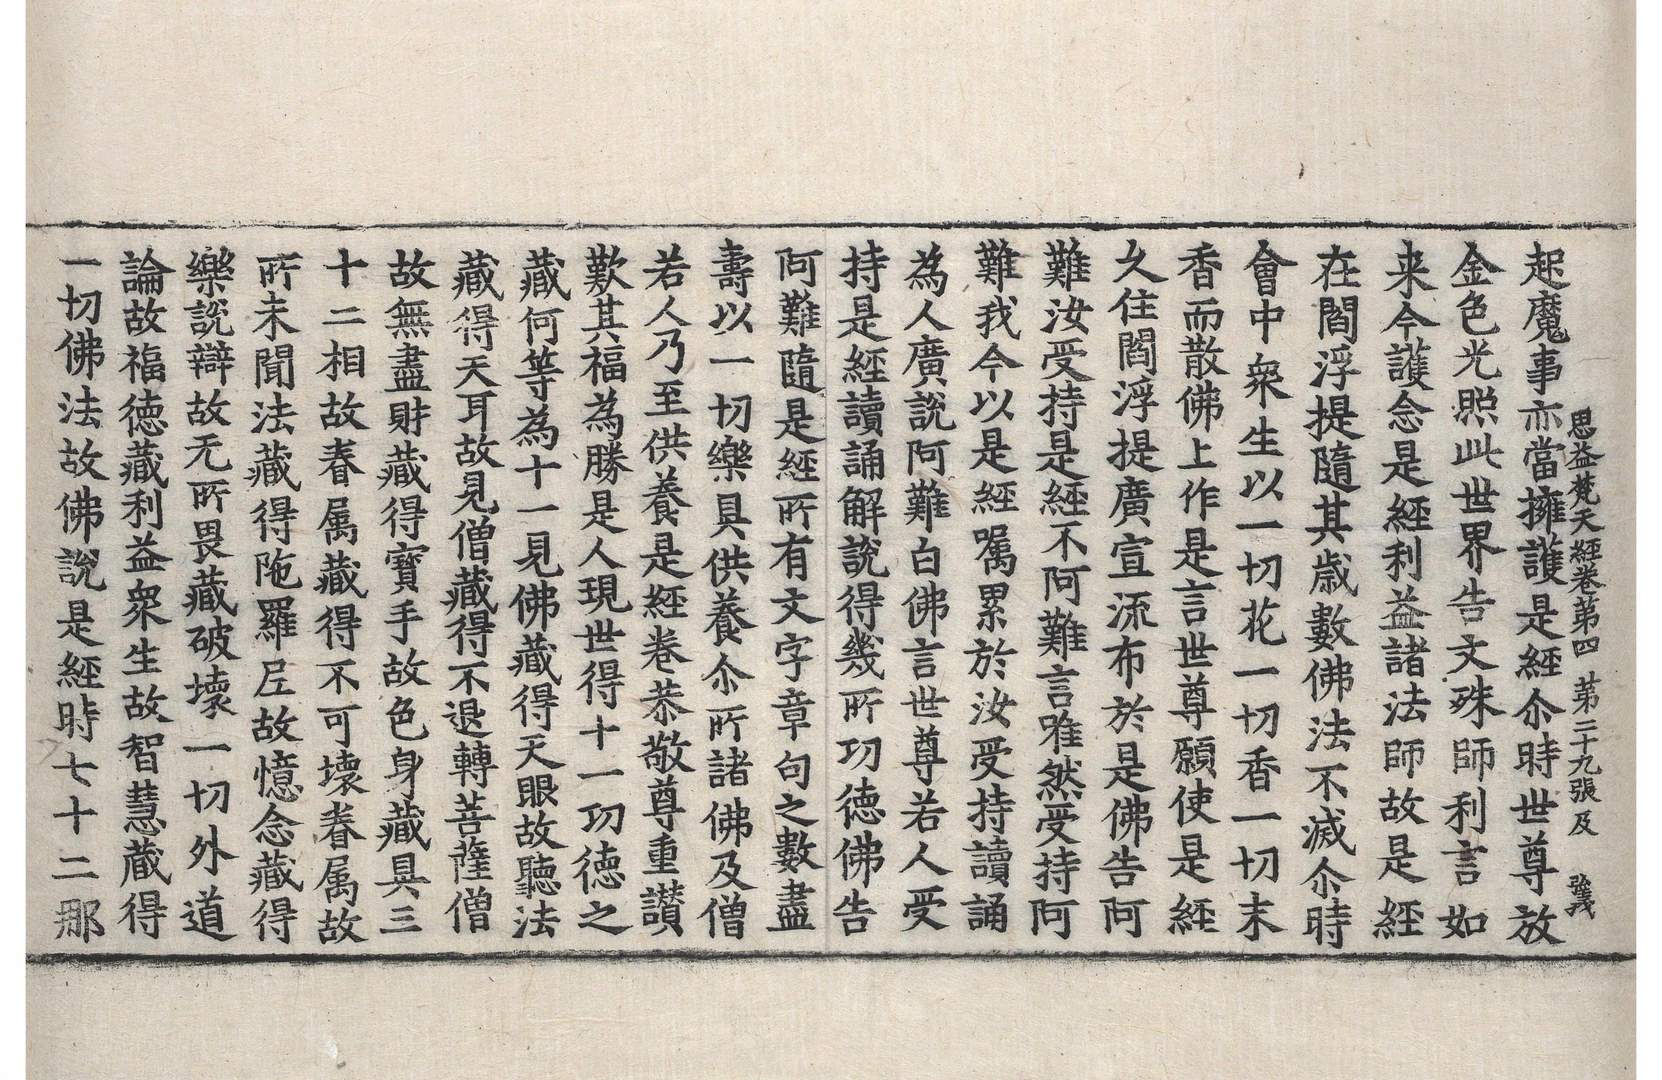 思益梵天經卷第四 第二十九張 及
起魔事亦當擁護是經尒時世尊放
金色光照此世界告文殊師利言如
来今護念是經利益諸法師故是經
在閻浮提隨其歲數佛法不滅尒時
會中衆生以一切花一切香一切末
香而散佛上作是言世尊願使是經
久住閻浮提廣宣流布於是佛告阿
難汝受持是經不阿難言唯然受持阿
難我今以是經嘱累於汝受持讀誦
為人廣說阿難白佛言世尊若人受
持是經讀誦解說得幾所功德佛告
阿難隨是經所有文字章句之數盡
壽以一切樂具供養尒所諸佛及僧
若人乃至供養是經卷恭敬尊重讃
歎其福為勝是人現世得十一功德之
藏何等為十一見佛藏得天眼故聽法
藏得天耳故見僧藏得不退轉菩薩僧
故無盡財藏得寶手故色身藏具三
十二相故眷属藏得不可壞眷属故
所未聞法藏得陁羅尼故憶念藏得
樂說辯故无所畏藏破壞一切外道
論故福德藏利益衆生故智慧藏得
一切佛法故佛說是經時七十二那